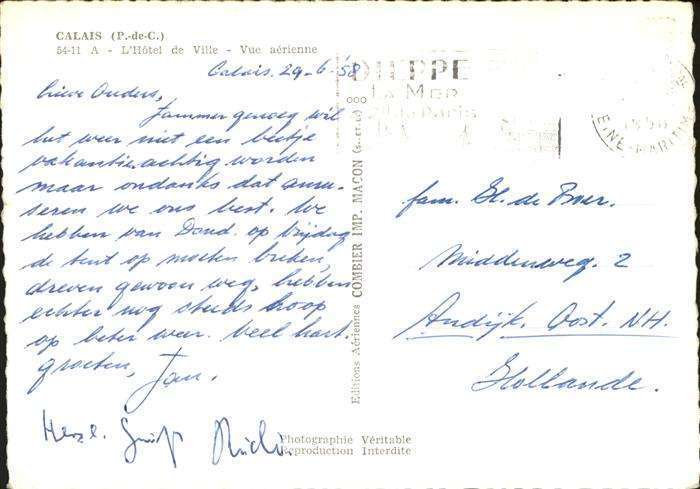 CALAIS (P.-de-C.)
54-11 A - L'Hôtel de Ville - Vue aérienne
Calais. 29-6-'58
Lieve Ouders,
Jammer genoeg wil
het weer niet een beetje
vakantie achtig worden
maar ondanks dat amu-
seren we ons best. We
hebben van Dond. op Vrijdag
de tent op moeten breken,
dreven gewoon weg, hebben
echter nog steeds hoop
op beter weer. Veel hart.
groeten, Jan.
Herzl.
DIEPPE
LA MER
Editions Aériennes COMBIER IMP. MACON (S.-et-L.)
fam. de Boer.
Middenweg. 2
Andijk. Oost. NH.
Hollande.
Photographie Véritable
Reproduction Interdite